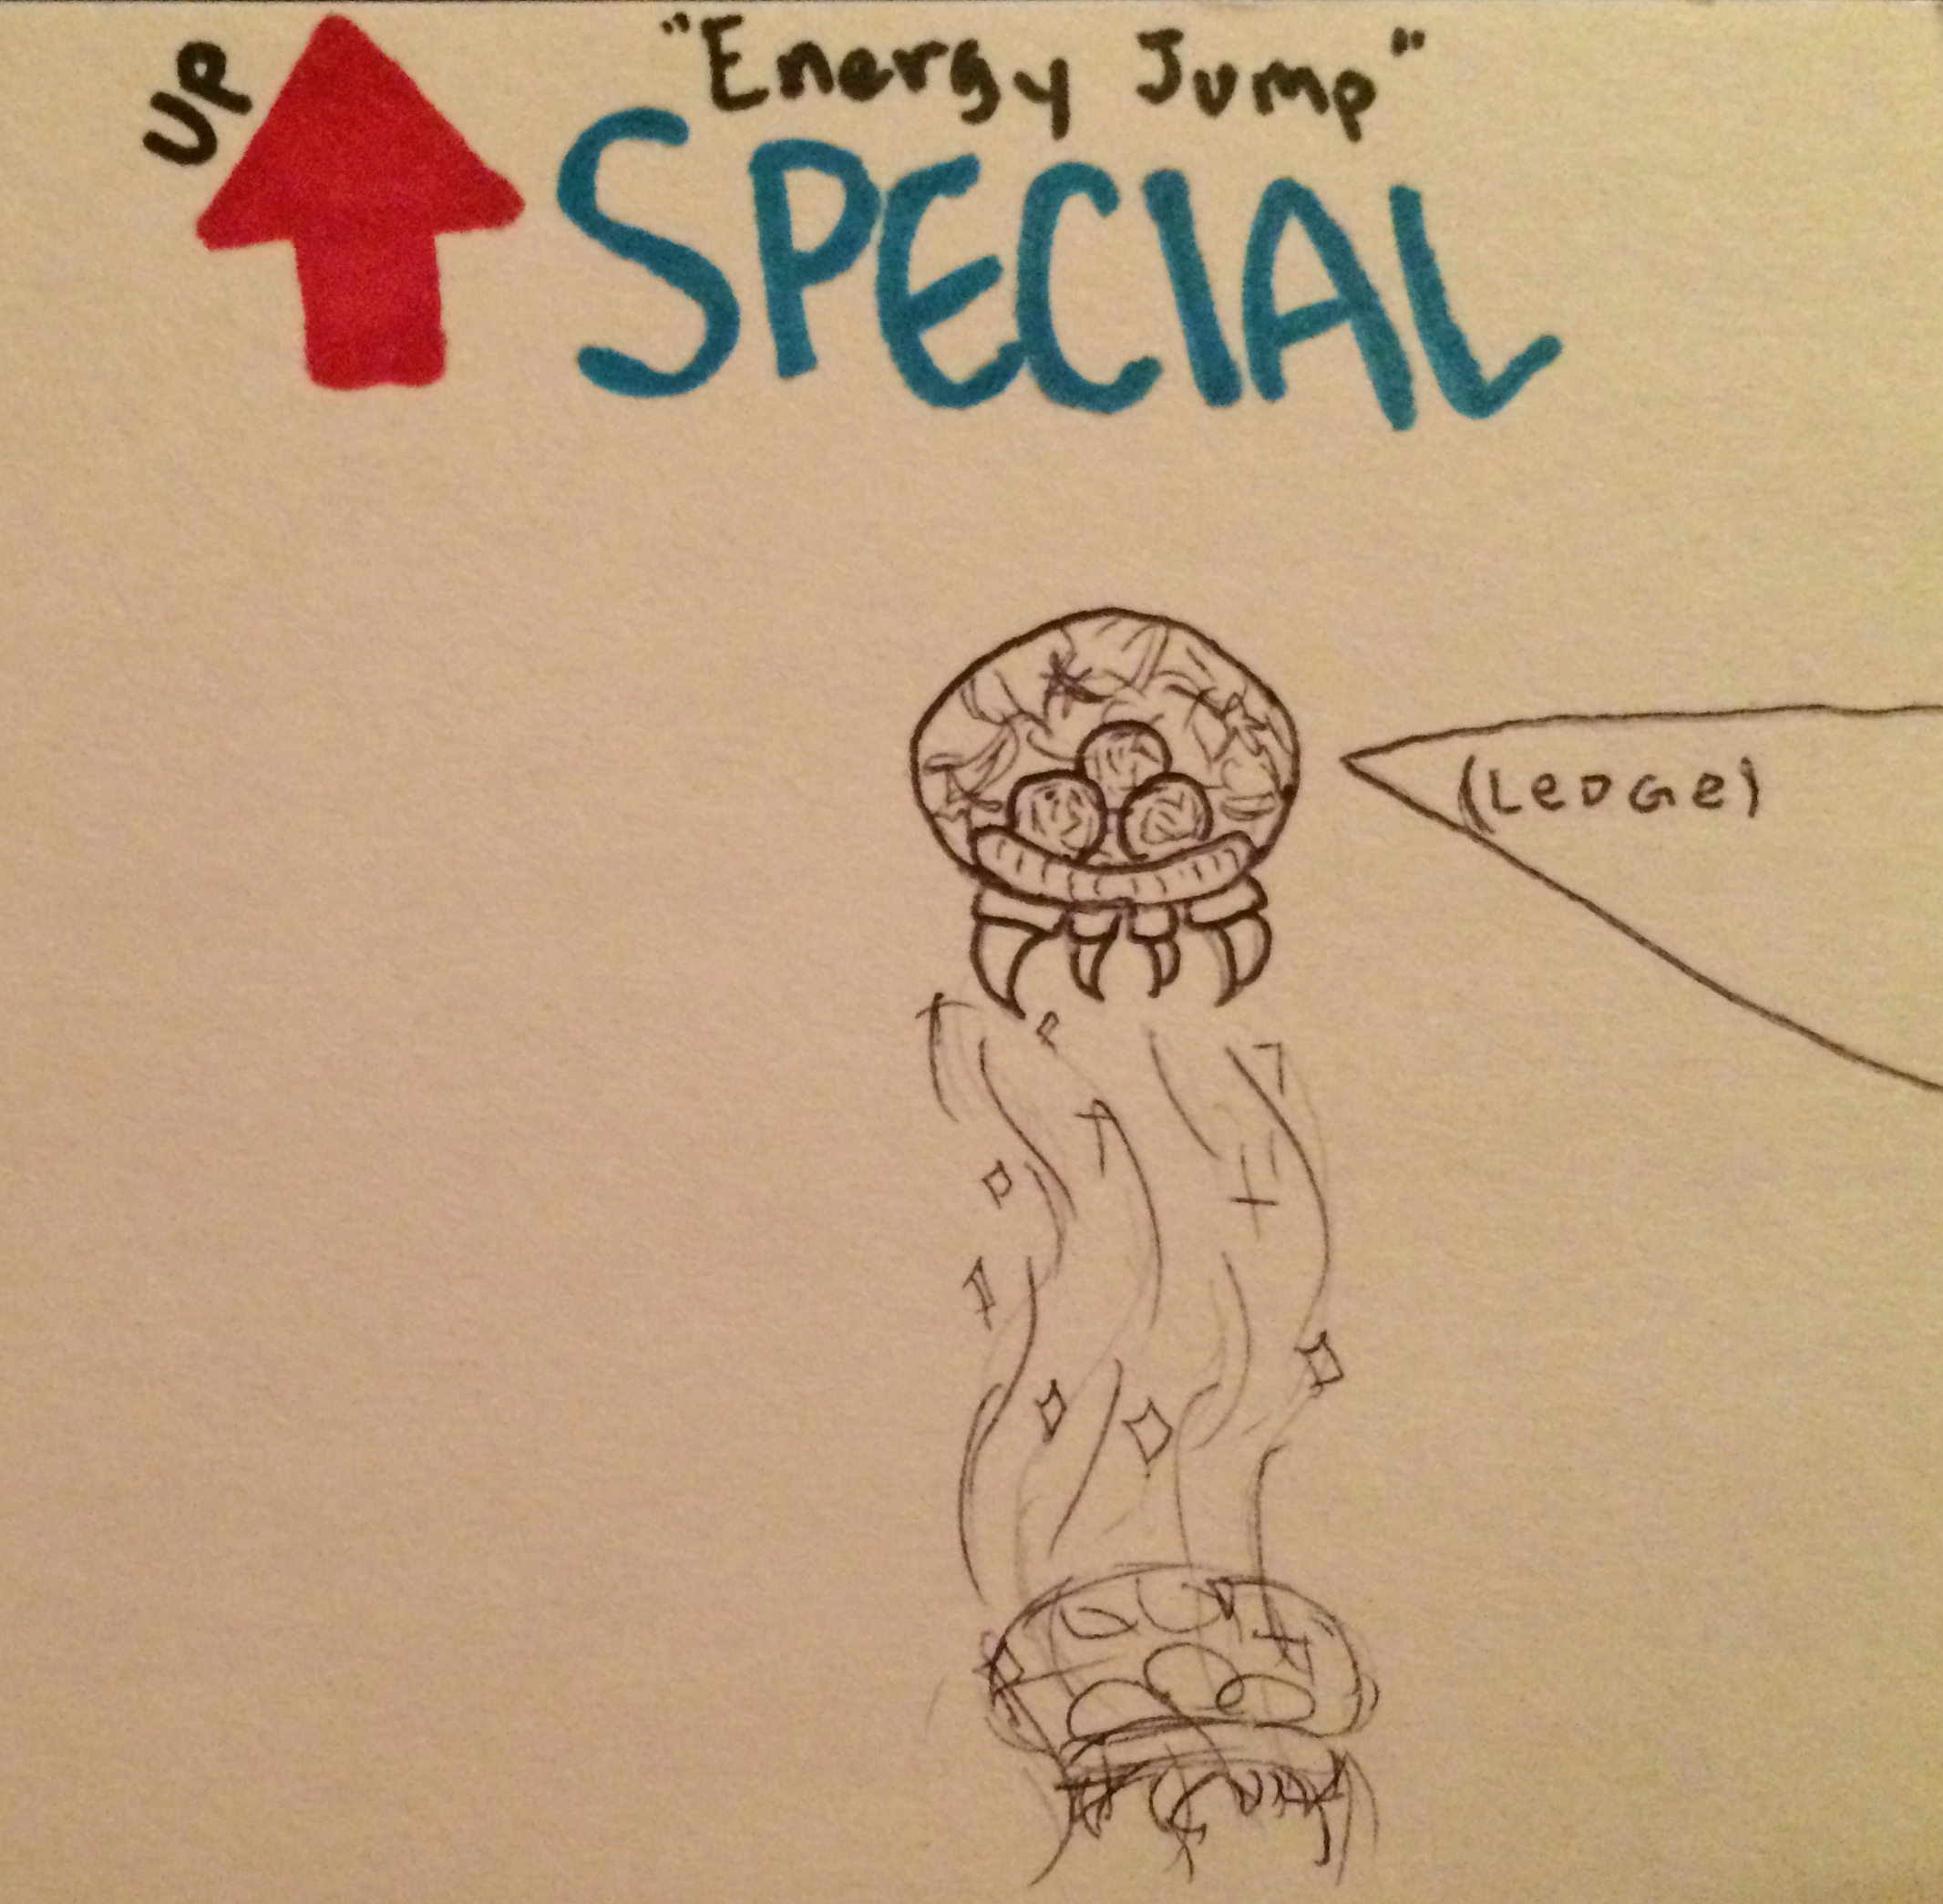 UP
"Energy Jump"
SPECIAL
(LeDGe)